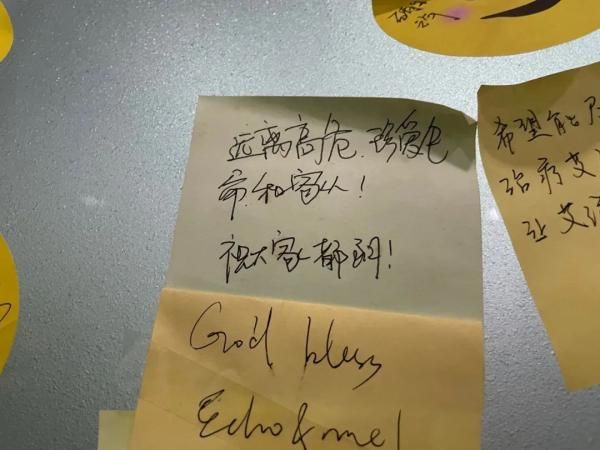 远离高危.珍爱生
命.和家人!
祝大家都到!
God bless
Echo & me!
希望能
治疗艾
让艾滋